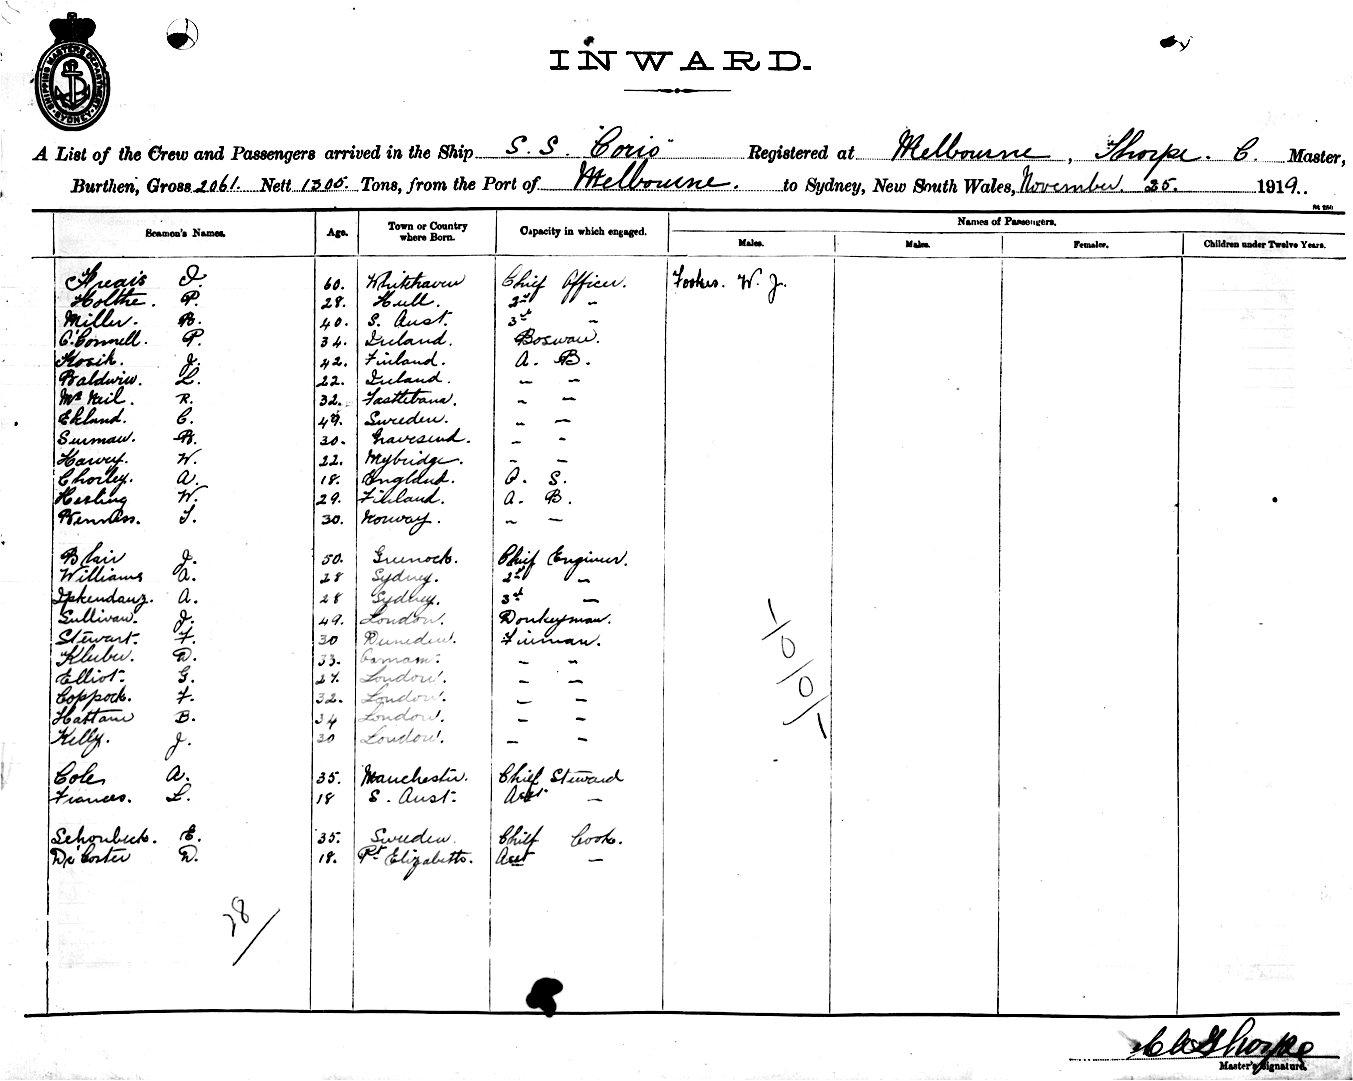 SHIPPING MASTERS DEPARTMENT SYDNEY
INWARD.
A List of the Crew and Passengers arrived in the Ship S.S. "Corio" Registered at Melbourne, Thorpe. C. Master,
Burthen, Gross 2061. Nett 1305. Tons, from the Port of Melbourne. to Sydney, New South Wales, November. 25. 1919.
Seamen's Names. Age. Town or Country where Born. Capacity in which engaged. Names of Passengers.
Males. Males. Females. Children under Twelve Years.
J. 60. Whitehaven Chief Officer. Fookes. W. J.
Holthe. P. 28. Hull. 2nd "
Miller. B. 40. S. Aust. 3rd "
O'Connell. P. 34. Ireland. Boswan.
Kosik. J. 42. Finland. A. B.
Baldwin. L. 22. Ireland. " "
McNeil. R. 32. " "
Ekland. C. 49. Sweden. " "
Surman. B. 30. Gravesend. " "
Harvey. W. 22. Weybridge. " "
Chorley. A. 18. England. O. S.
Hesling W. 29. Finland. A. B.
T. 30. Norway. " "
Blair J. 50. Greenock. Chief Engineer.
Williams A. 28 Sydney. 2nd "
Ipkendanz. A. 28 Sydney. 3rd "
Sullivan. J. 49. London. Donkeyman.
Stewart. F. 30 Dunedin. Fireman.
D. 33. " "
Elliot. G. 27. London. " "
Coppock. F. 32. London. " "
Hattam B. 34 London. " "
Kelly. J. 30 London. " "
Cole A. 35. Manchester. Chief Steward
Frances. L. 18 S. Aust. Asst "
Schonbeck. E. 35. Sweden. Chief Cook.
De Coster D. 18. Pt Elizabeth. Asst "
1/0/0/1
28/
C A Thorpe
Master's Signature.